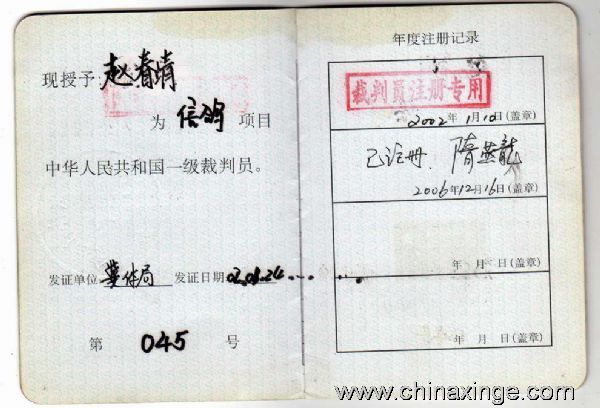 现授予：赵春清
为 信鸽 项目
中华人民共和国一级裁判员。
发证单位 冀体局 发证日期 02.08.24
第 045 号
年度注册记录
裁判员注册专用
2002年1月10日(盖章)
已注册、隋燕龍
2006年12月16日(盖章)
年 月 日(盖章)
年 月 日(盖章)
www.chinaxinge.com